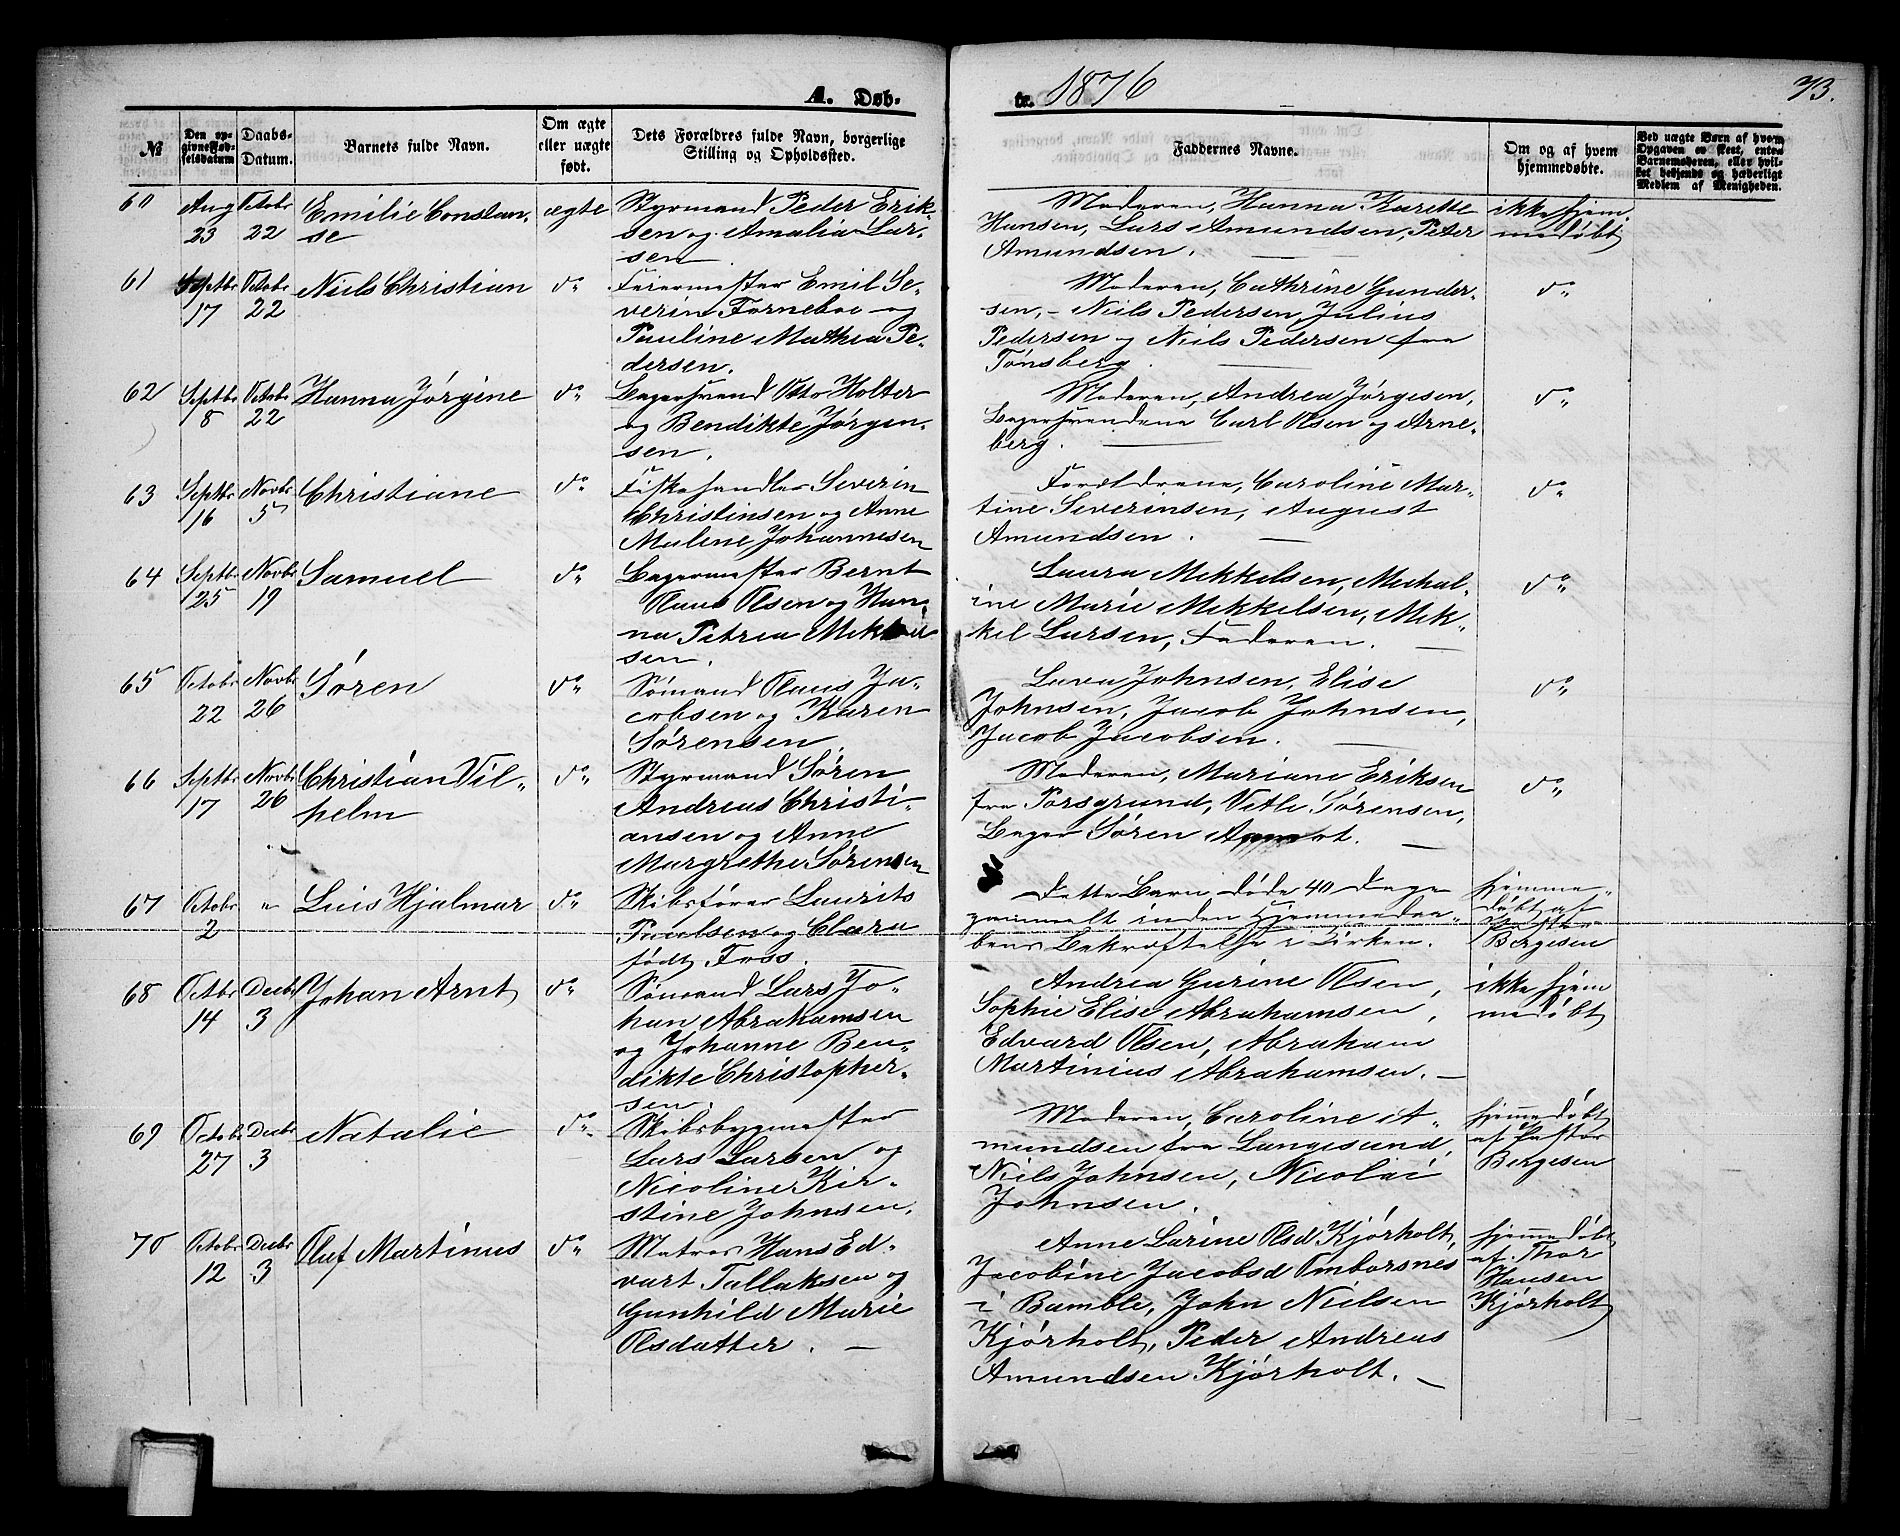 A. Døb-
te. 1876
73.
№
Den op-
givne Fød-
selsdatum
Daabs-
Datum.
Barnets fulde Navn.
Om ægte
eller uægte
født.
Dets Forældres fulde Navn, borgerlige
Stilling og Opholdssted.
Faddernes Navne.
Om og af hvem
hjemmedøbte.
Ved uægte Børn af hvem
Opgaven er skeet, enten
Barnemoderen, eller hvil-
ket bekjendt og hæderligt
Medlem af Menigheden.
60
Aug
23
Octobr
22
Emilie Constan-
se
ægte
Styrmand Peder Erik-
sen og Amalia Lar-
sen
Moderen, Hanna Karette
Hansen, Lars Amundsen, Peter
Amundsen.
ikke hjem-
medøbt
61
Septbr
17
Octobr
22
Niels Christian
do
Feiermester Emil Se-
verin Forneboe og
Pauline Mathea Pe-
dersen.
Moderen, Cathrine Gunder-
sen, - Niels Pedersen, Julius
Pedersen og Niels Pedersen fra
Tønsberg.
do
62
Septbr
8
Octobr
22
Hanna Jørgine
do
Bagersvend Otto Holter
og Bendikte Jørgen-
sen.
Moderen, Andrea Jørgesen,
Bagersvendene Carl Olsen og Arne-
berg.
do
63
Septbr
16
Novbr
5
Christiane
do
Fiskehandler Severin
Christinsen og Anne
Malene Johannesen
Forældrene, Caroline Mar-
tine Severinsen, August
Amundsen.
do
64
Septbr
25
Novbr
19
Samuel
do
Bagermester Bernt
Olaus Olsen og Han-
na Petrea Mikkel
sen.
Laura Mikkelsen, Michal-
ine Marie Mikkelsen, Mik-
kel Larsen, Faderen.
do
65
Octobr
22
Novbr
26
Søren
do
Sømand Olaus Ja-
cobsen og Karen
Sørensen
Lava Johnsen, Elise
Johnsen, Jacob Johnsen,
Jacob Jacobsen.
do
66
Septbr
17
Novbr
26
Christian Vil-
helm
do
Styrmand Søren
Andreas Christi-
ansen og Anne
Margrethe Sørensen
Moderen, Mariane Eriksen
fra Porsgrund, Vetle Sørensen,
Bager Søren
do
67
Octobr
2
"
Luis Hjalmar
do
Skibsfører Laurits
Paulsen og Clara
født Foss.
Dette Barn døde 40 Dage
gammelt inden Hjemmedaa-
bens Bekræftelse i Kirken.
hjemme-
døbt af
Pastor
Bergesen
68
Octbr
14
Decbr
3
Johan Arnt
do
Sømand Lars Jo-
han Abrahamsen
og Johanne Ben-
dikte Christopher-
sen
Andrea Gurine Olsen,
Sophie Elise Abrahamsen,
Edvard Olsen, Abraham
Martinius Abrahamsen.
ikke hjem
medøbt
69
Octobr
27
Decbr
3
Natalie
do
Skibsbygmester
Lars Larsen og
Nicoline Kir-
stine Johnsen.
Moderen, Caroline A-
mundsen fra Langesund,
Niels Johnsen, Nicolai
Johnsen.
hjemmedøbt
af Pastor
Bergesen
70
Octobr
12
Decbr
3
Oluf Martinus
do
Matros Hans Ed-
vart Tallaksen og
Gunhild Marie
Olsdatter.
Anne Larine Olsd Kjørholt,
Jacobine Jacobsd Omborsnes
i Bamble, John Nielsen
Kjørholt, Peder Andreas
Amundsen Kjørholt.
hjemmedøbt
af Thor
Hansen
Kjørholt